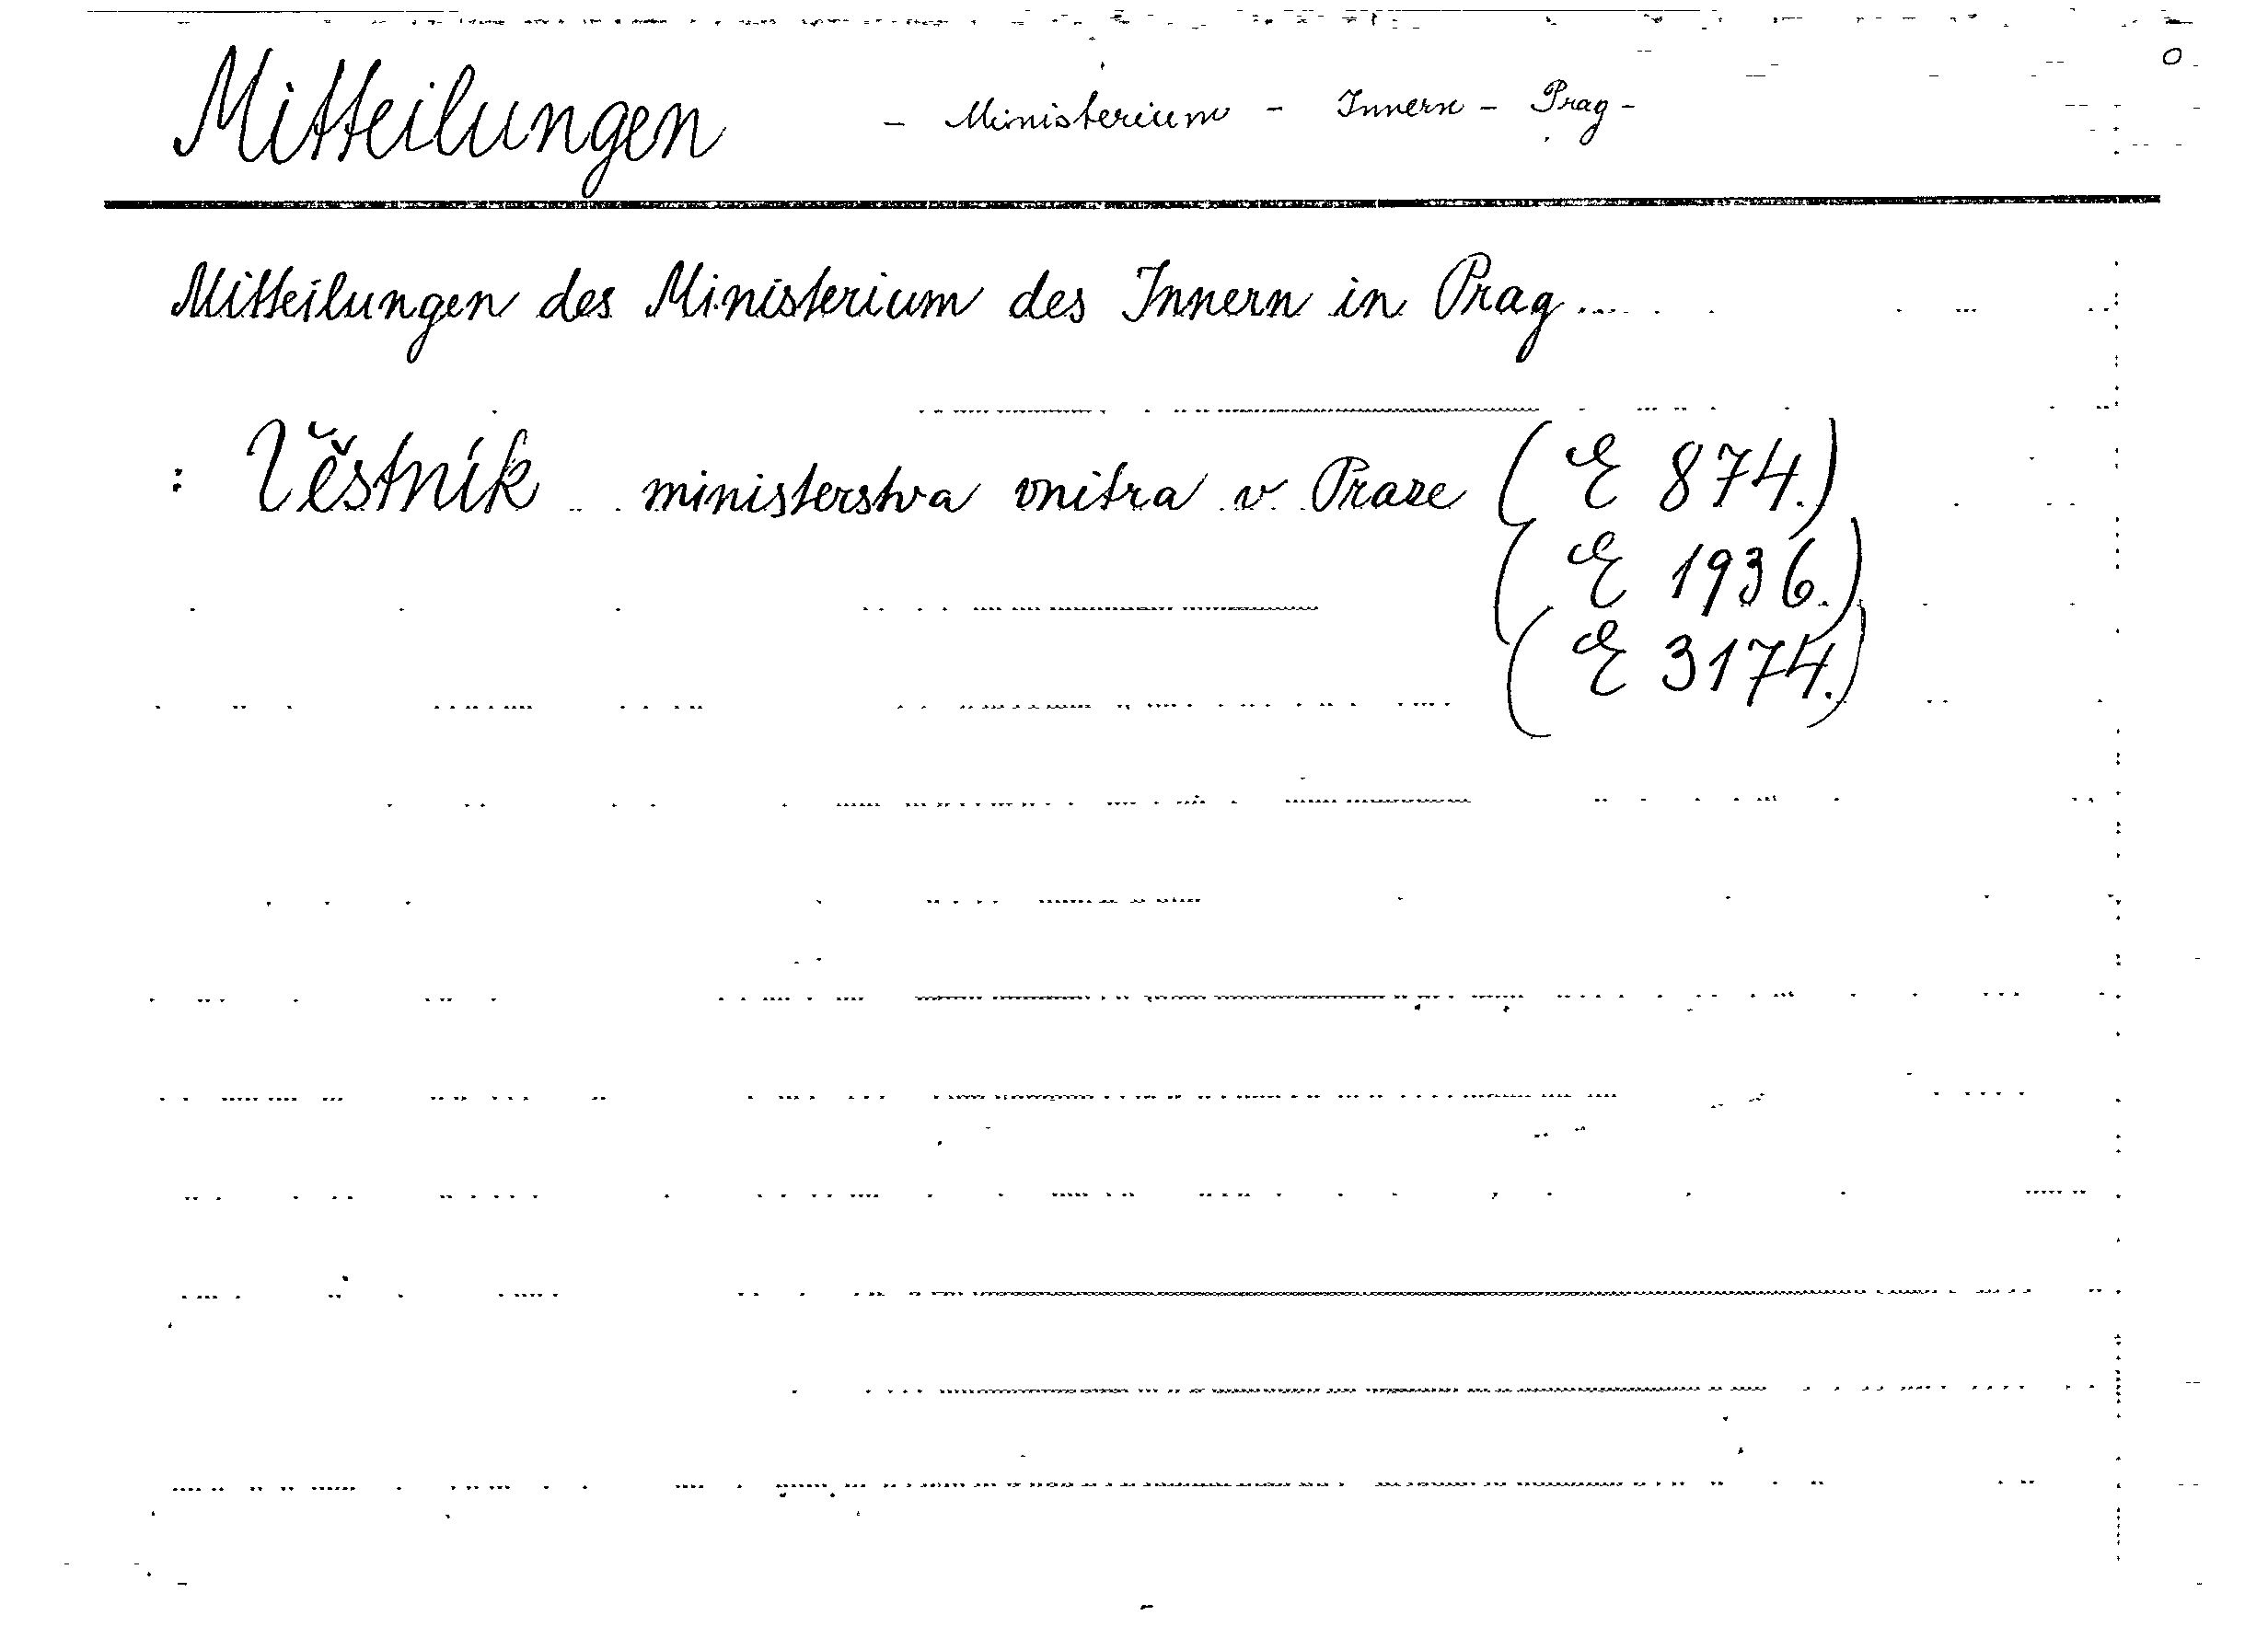 Mitteilungen - Ministerium - Innern - Prag -
Mitteilungen des Ministerium des Innern in Prag
: Věstník ministerstva vnitra v Praze (E 874.)
(E 1936.)
(E 3174.)